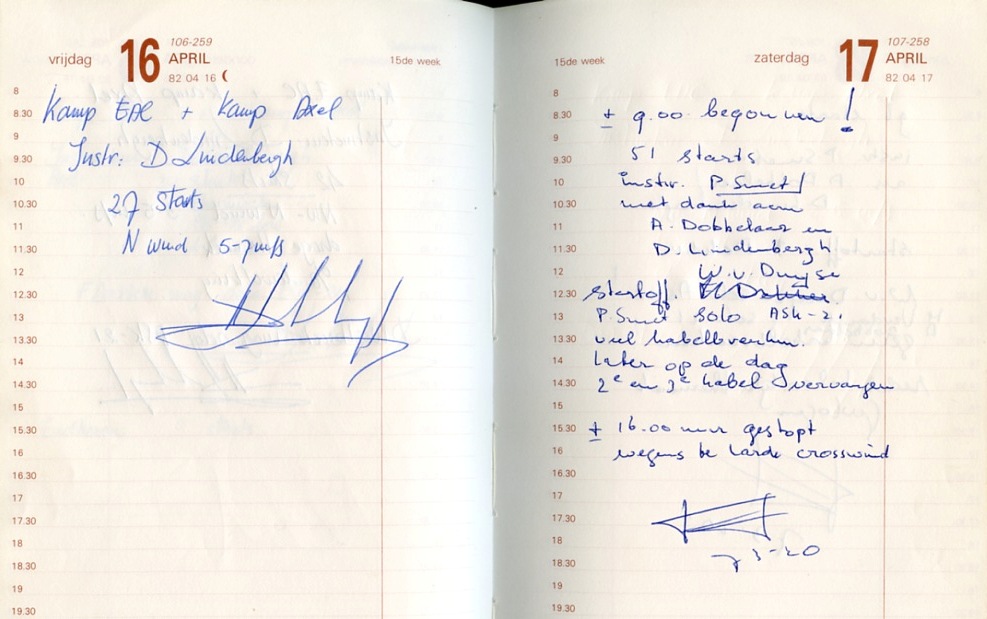 vrijdag 16 106-259 APRIL 82 04 16 15de week
8
8.30 Kamp EAC + Kamp Axel
9
9.30 Instr: D Lindenbergh
10
10.30 27 Starts
11
11.30 N wind 5-7 m/s
12
12.30
13
13.30
14
14.30
15
15.30
16
16.30
17
17.30
18
18.30
19
19.30
15de week zaterdag 17 107-258 APRIL 82 04 17
8
8.30 ± 9.00 begonnen!
9
9.30 51 starts
10 instr. P. Smet
10.30 met dank aan
11 A. Dobbelaar en
11.30 D. Lindenbergh
12 W. v. Duyse
12.30 startoff.
13 P. Smet Solo ASK-2.
13.30 veel kabelbreuken.
14 Later op de dag
14.30 2e en 3e kabel vervangen
15
15.30 ± 16.00 uur gestopt
16 wegens te crosswind
16.30
17
17.30
18
18.30
19
19.30